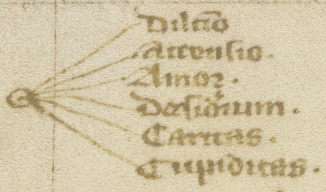 Dilcc̄o
Accensio.
Amor.
Desid'ium.
Caritas.
Cupiditas.